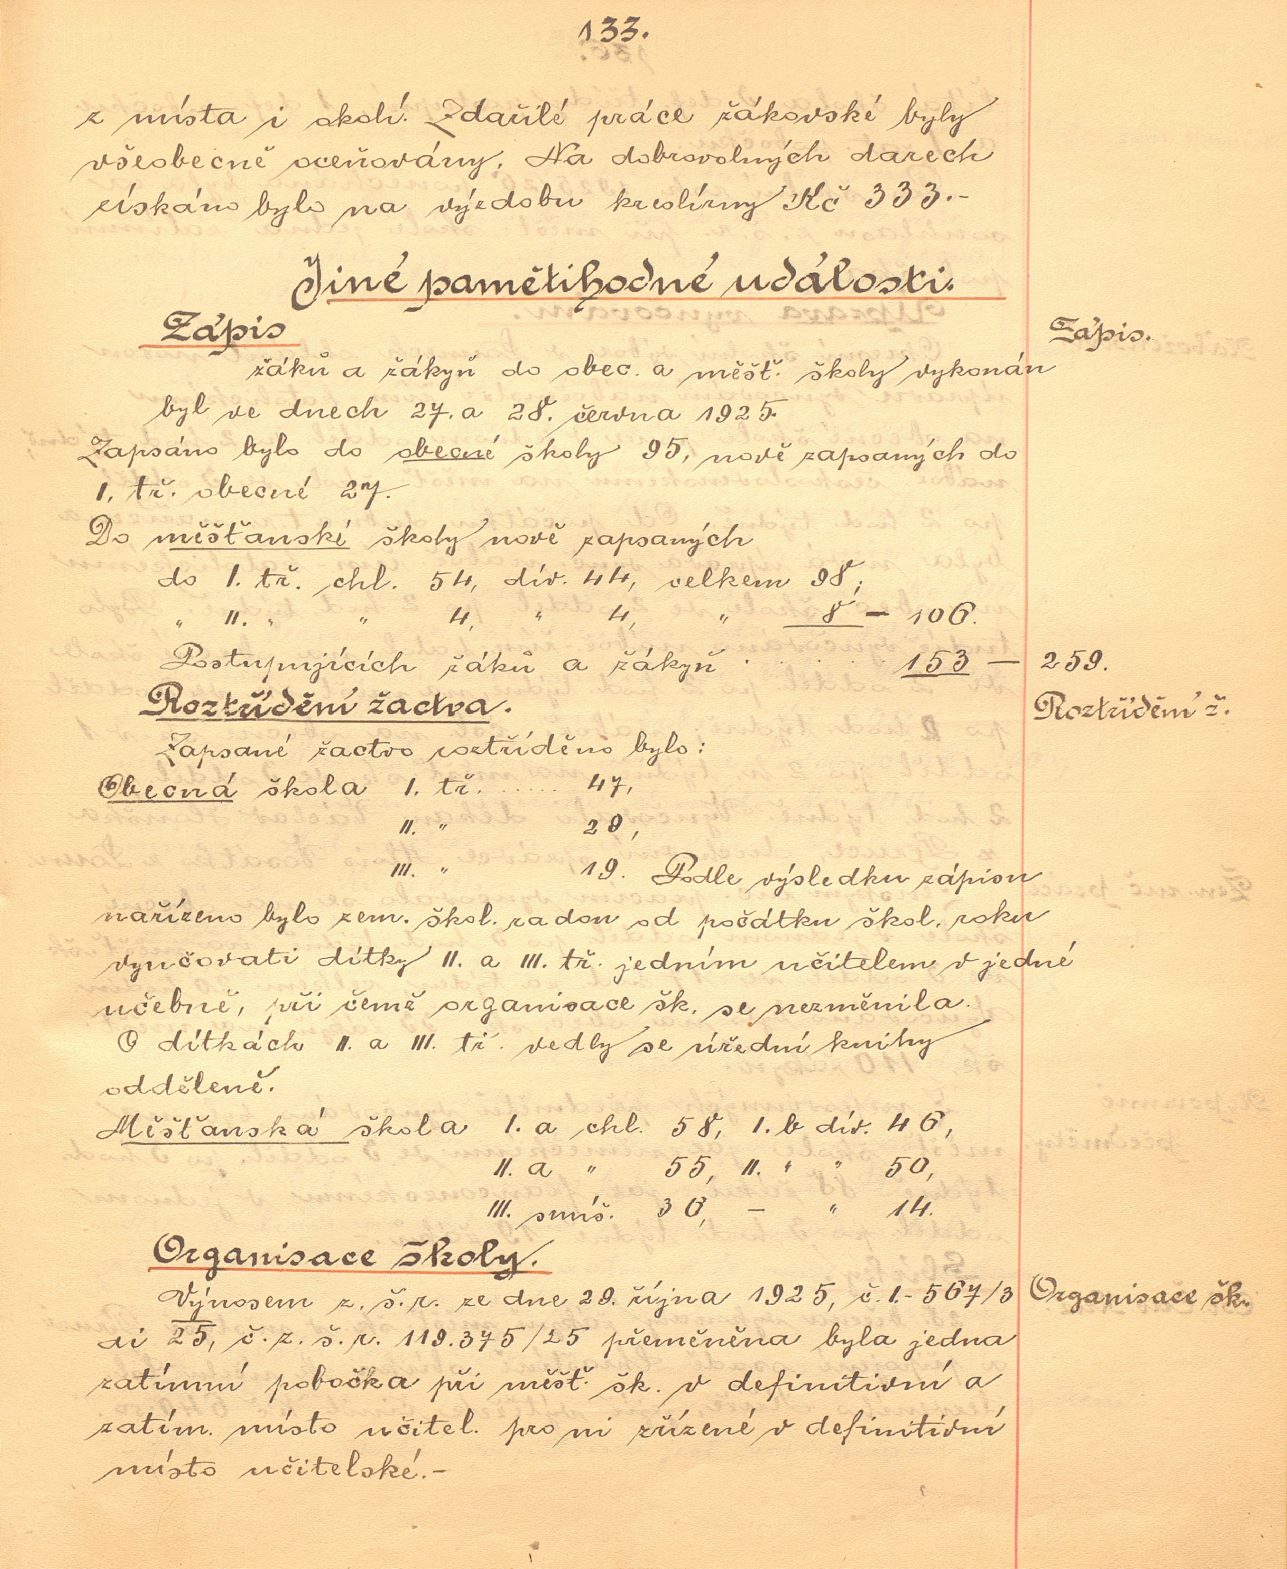 133.
z místa i okolí. Zdařilé práce žákovské byly
všeobecně oceňovány. Na dobrovolných darech
získáno bylo na výzdobu kreslírny Kč 333.-
Jiné pamětihodné události.
Zápis
Zápis.
žáků a žákyň do obec. a měšť. školy vykonán
byl ve dnech 27. a 28. června 1925.
Zapsáno bylo do obecné školy 95, nově zapsaných do
I. tř. obecné 27.
Do měšťanské školy nově zapsaných
do I. tř. chl. 54, dív. 44, celkem 98;
„ II. „ „ 4, „ 4, „ 8 — 106.
Postupujících žáků a žákyň . . . . . . 153 — 259.
Roztřídění žactva.
Roztřídění ž.
Zapsané žactvo roztříděno bylo:
Obecná škola I. tř. ..... 47,
II. „ 29,
III. „ 19. Podle výsledku zápisu
nařízeno bylo zem. škol. radou od počátku škol. roku
vyučovati dítky II. a III. tř. jedním učitelem v jedné
učebně, při čemž organisace šk. se nezměnila.
O dítkách II. a III. tř. vedly se úřední knihy
odděleně.
Měšťanská škola I. a chl. 58, I. b dív. 46,
II. a „ 55, II. „ „ 50,
III. smíš. 36, — „ 14.
Organisace školy.
Výnosem z. š. r. ze dne 29. října 1925, č. I.-567/3
Organisace šk.
ai 25, č. z. š. r. 119.375/25 přeměněna byla jedna
zatímní pobočka při měšť. šk. v definitivní a
zatím. místo učitel. pro ni zřízené v definitivní
místo učitelské.-